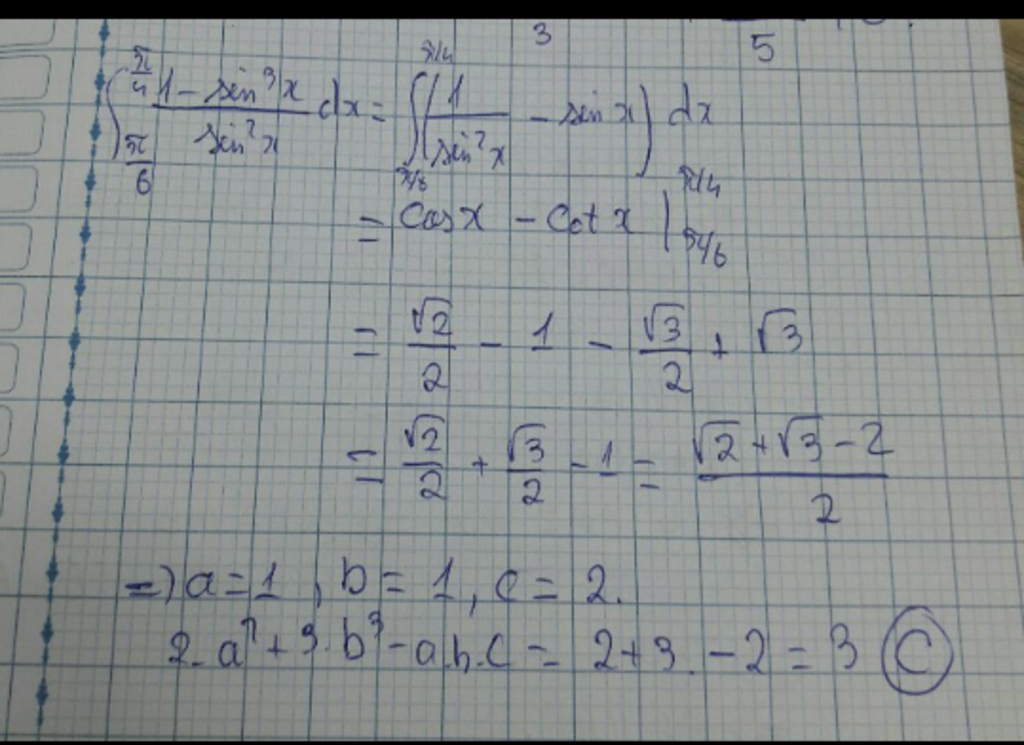 3 5
∫_{π/6}^{π/4} (1 - sin³x)/(sin²x) dx = ∫_{π/6}^{π/4} (1/(sin²x) - sin x) dx
= cos x - cot x |_{π/6}^{π/4}
= √2/2 - 1 - √3/2 + √3
= √2/2 + √3/2 - 1 = (√2 + √3 - 2)/2
=) a = 1, b = 1, c = 2.
2.a² + 3.b³ - a.b.c = 2 + 3. - 2 = 3 C